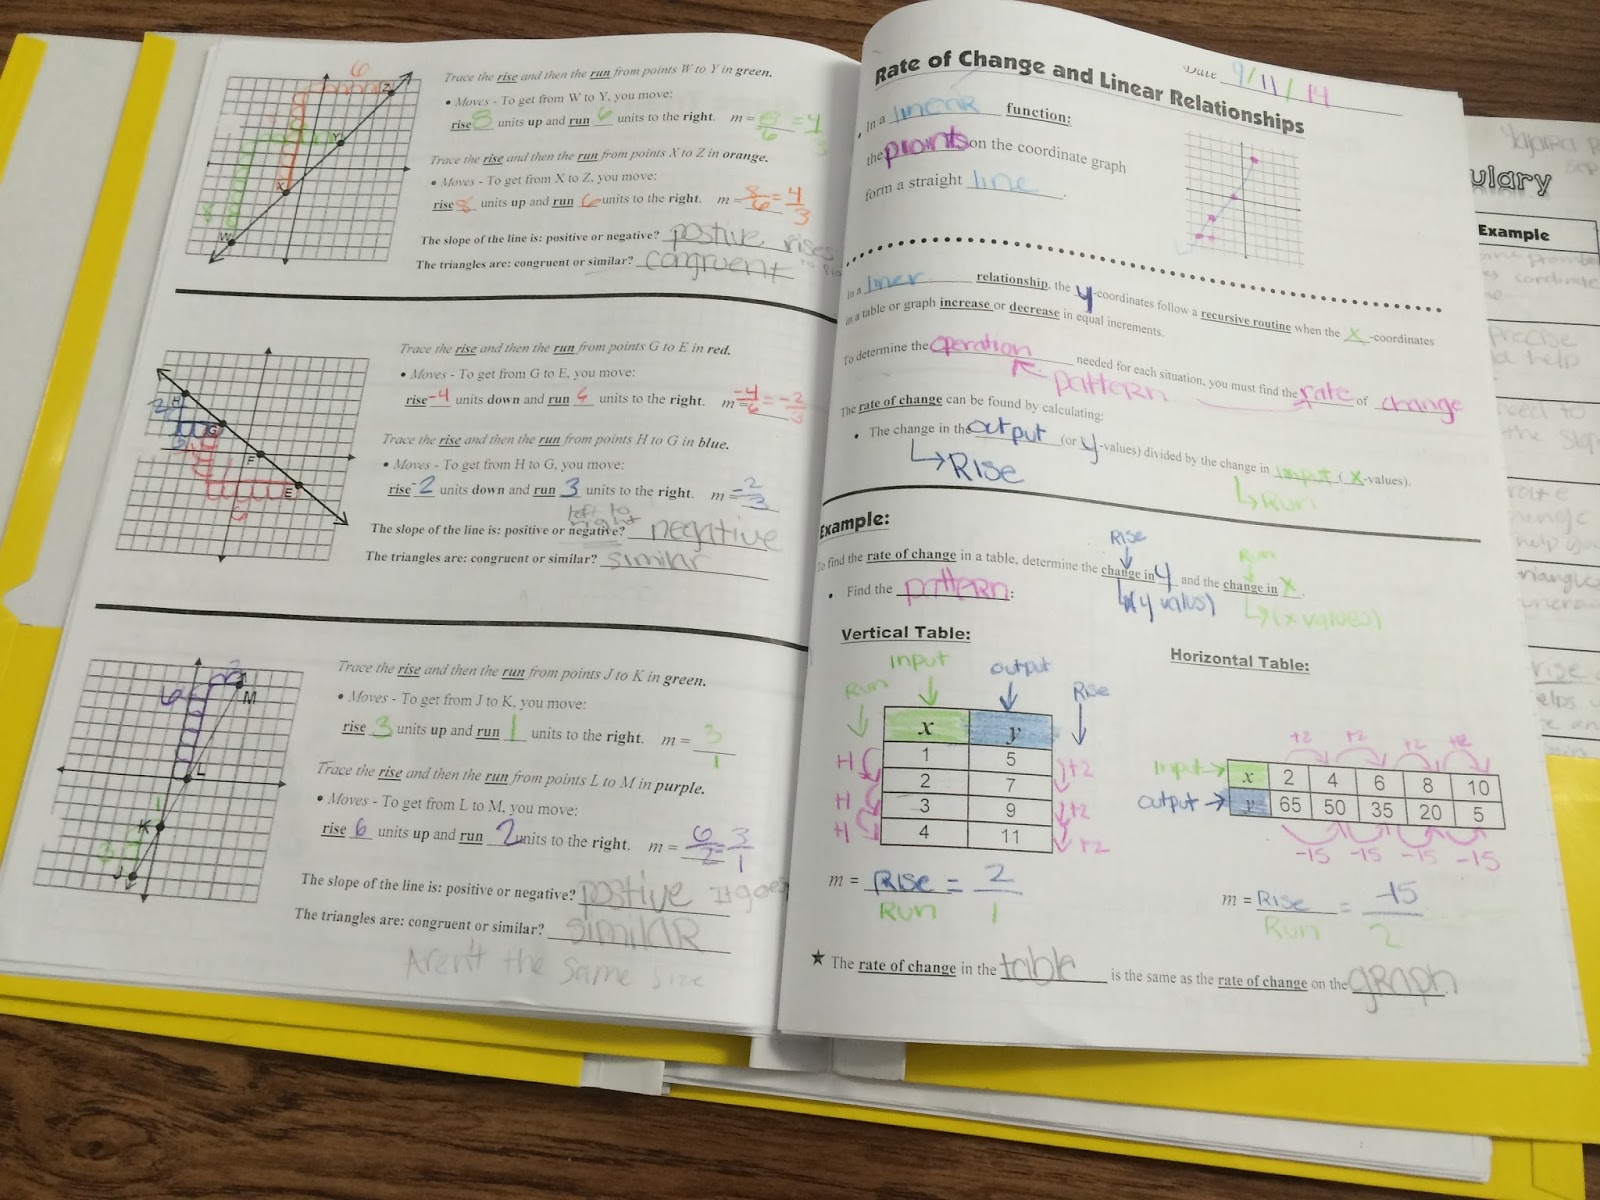 6
Z
Y
X
8
W
Trace the rise and then the run from points W to Y in green.
• Moves - To get from W to Y, you move:
rise 8 units up and run 6 units to the right. m = 8/6 = 4/3
Trace the rise and then the run from points X to Z in orange.
• Moves - To get from X to Z, you move:
rise 8 units up and run 6 units to the right. m = 8/6 = 4/3
The slope of the line is: positive or negative? postive rises
The triangles are: congruent or similar? congruent
H
2
G
3
F
E
6
Trace the rise and then the run from points G to E in red.
• Moves - To get from G to E, you move:
rise -4 units down and run 6 units to the right. m = -4/6 = -2/3
Trace the rise and then the run from points H to G in blue.
• Moves - To get from H to G, you move:
rise -2 units down and run 3 units to the right. m = -2/3
left to
right
The slope of the line is: positive or negative? negative
The triangles are: congruent or similar? similar
2
6
M
L
1
K
3
J
Trace the rise and then the run from points J to K in green.
• Moves - To get from J to K, you move:
rise 3 units up and run 1 units to the right. m = 3/1
Trace the rise and then the run from points L to M in purple.
• Moves - To get from L to M, you move:
rise 6 units up and run 2 units to the right. m = 6/2 = 3/1
The slope of the line is: positive or negative? postive It goes
The triangles are: congruent or similar? similar
Aren't the same size
Date 9/11/14
Rate of Change and Linear Relationships
• In a linear function:
the points on the coordinate graph
form a straight line.
In a liner relationship, the y-coordinates follow a recursive routine when the x-coordinates
in a table or graph increase or decrease in equal increments.
To determine the operation needed for each situation, you must find the rate of change
pattern
The rate of change can be found by calculating:
• The change in the output (or y-values) divided by the change in input (x-values).
Rise
Run
Example:
Rise
Run
To find the rate of change in a table, determine the change in y and the change in x.
• Find the pattern:
(y values)
(x values)
Vertical Table:
Horizontal Table:
input output
Run Rise
x y
1 5
2 7
3 9
4 11
+1 +2
+1 +2
+1 +2
m = Rise/Run = 2/1
+2 +2 +2 +2
input x 2 4 6 8 10
output y 65 50 35 20 5
-15 -15 -15 -15
m = Rise/Run = -15/2
★ The rate of change in the table is the same as the rate of change on the graph.
ulary
Example
coordinate
precise
help
need to
the slop
rate
help you
triangles
rise
elps